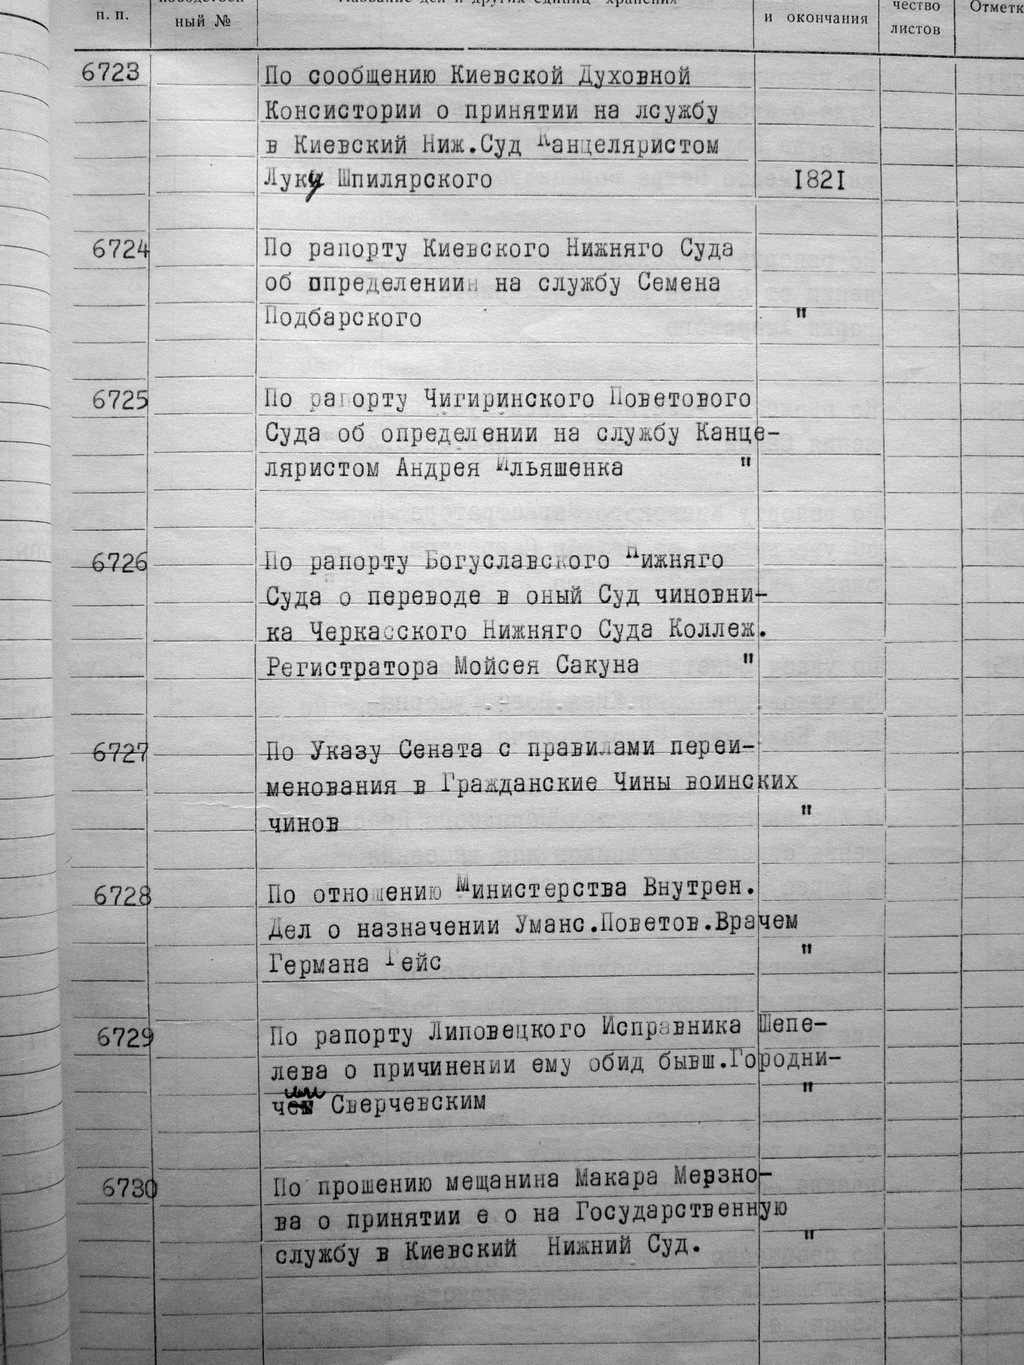 п. п.
ный №
Название дел и других единиц хранения
и окончания
чество
листов
Отметк
6723
По сообщению Киевской Духовной
Консистории о принятии на лсужбу
в Киевский Ниж.Суд Канцеляристом
Луку Шпилярского 1821
6724
По рапорту Киевского Нижняго Суда
об определении на службу Семена
Подбарского "
6725
По рапорту Чигиринского Поветового
Суда об определении на службу Канце-
ляристом Андрея Ильяшенка "
6726
По рапорту Богуславского Нижняго
Суда о переводе в оный Суд чиновни-
ка Черкасского Нижняго Суда Коллеж.
Регистратора Мойсея Сакуна "
6727
По Указу Сената с правилами переи-
менования в Гражданские Чины воинских
чинов "
6728
По отношению Министерства Внутрен.
Дел о назначении Уманс.Поветов.Врачем
Германа Гейс "
6729
По рапорту Липовецкого Исправника Шепе-
лева о причинении ему обид бывш.Городни-
чим Сверчевским "
6730
По прошению мещанина Макара Мерзно-
ва о принятии е о на Государственную
службу в Киевский Нижний Суд. "